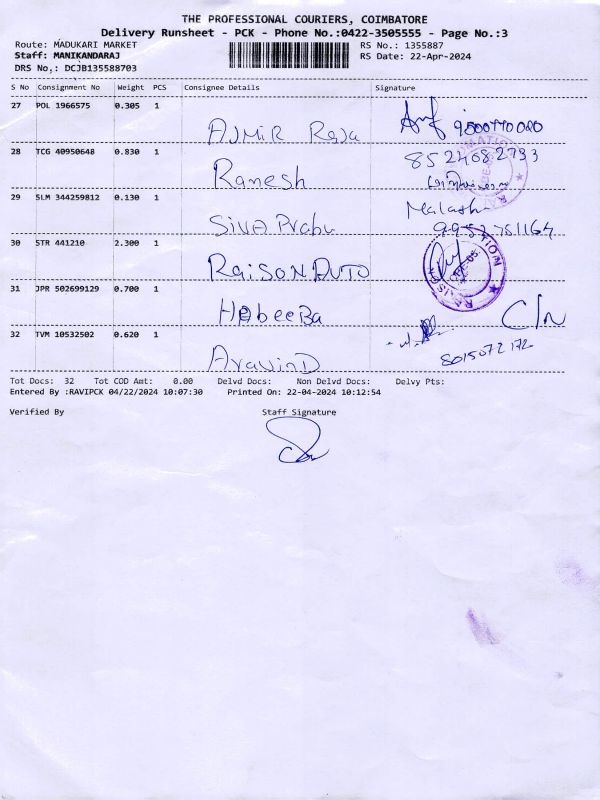 THE PROFESSIONAL COURIERS, COIMBATORE
Delivery Runsheet - PCK - Phone No.:0422-3505555 - Page No.:3
Route: MADUKARI MARKET RS No.: 1355887
Staff: MANIKANDARAJ RS Date: 22-Apr-2024
DRS No.: DCJB135588703
S No Consignment No Weight PCS Consignee Details Signature
27 POL 1966575 0.305 1
AJMIR Raja 9500770020
28 TCG 40950648 0.830 1 8524682733
Ramesh
29 SLM 344259812 0.130 1
SIVA Prabu 9952751164
30 STR 441210 2.300 1
RAISON AUTO
31 JPR 502699129 0.700 1
HabeeBa C/N
32 TVM 10532502 0.620 1
AravinD 8015072172
Tot Docs: 32 Tot COD Amt: 0.00 Delvd Docs: Non Delvd Docs: Delvy Pts:
Entered By :RAVIPCK 04/22/2024 10:07:30 Printed On: 22-04-2024 10:12:54
Verified By Staff Signature